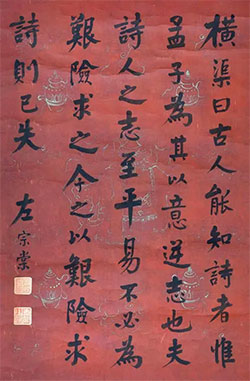 橫渠曰古人能知詩者惟
孟子為其以意逆志也夫
詩人之志至平易不必為
艱險求之今之以艱險求
詩則已失
左宗棠